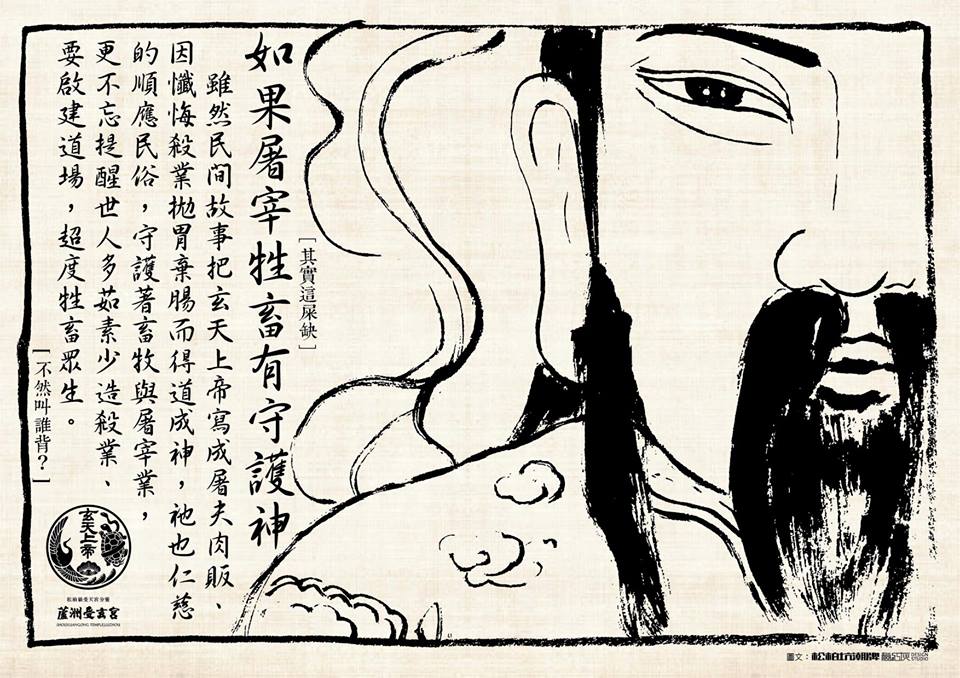 如果屠宰牲畜有守護神
[其實這屎缺]
雖然民間故事把玄天上帝寫成屠夫肉販、
因懺悔殺業拋胃棄腸而得道成神，祂也仁慈
的順應民俗，守護著畜牧與屠宰業，
更不忘提醒世人多茹素少造殺業、
要啟建道場，超度牲畜眾生。
[不然叫誰背？]
玄天上帝
松柏嶺受天宮分靈
蘆洲受玄宮
圖文：松柏坑潮牌
DESIGN STUDIO